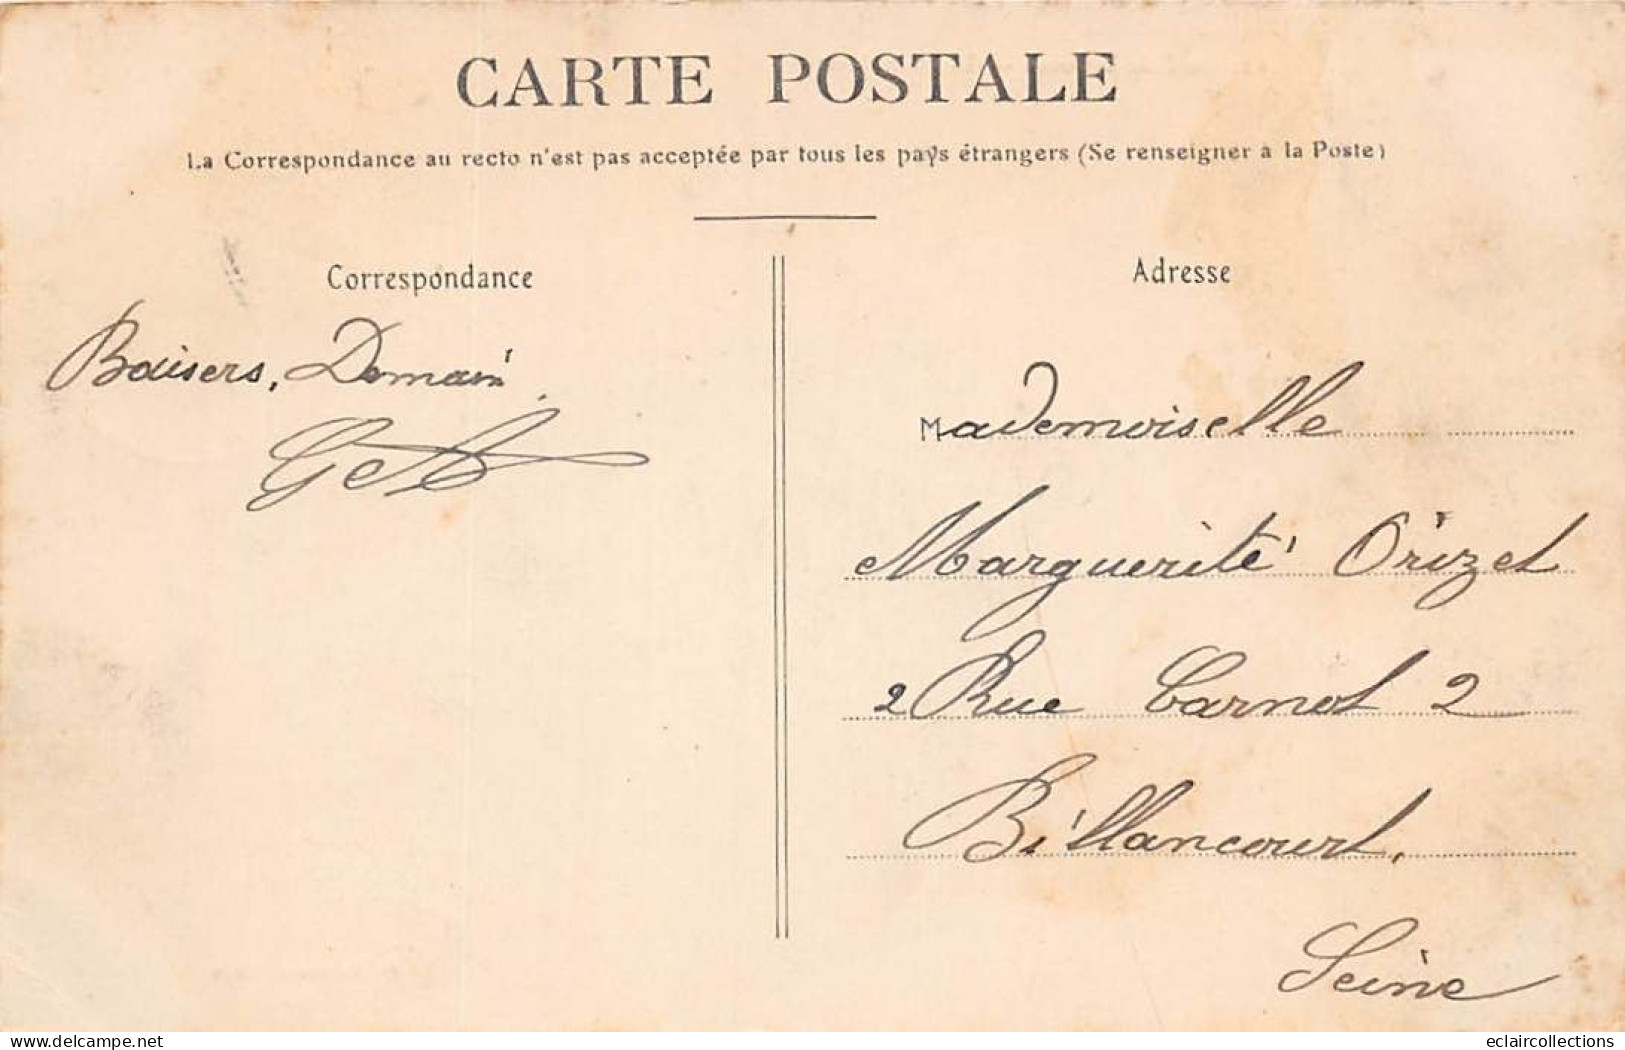 CARTE POSTALE
La Correspondance au recto n'est pas acceptée par tous les pays étrangers (Se renseigner a la Poste)
Correspondance
Baisers, Demain
Adresse
Mademoiselle
Marguerite Orizet
2 Rue Carnot 2
Billancourt.
Seine
delcampe.net
eclaircollections